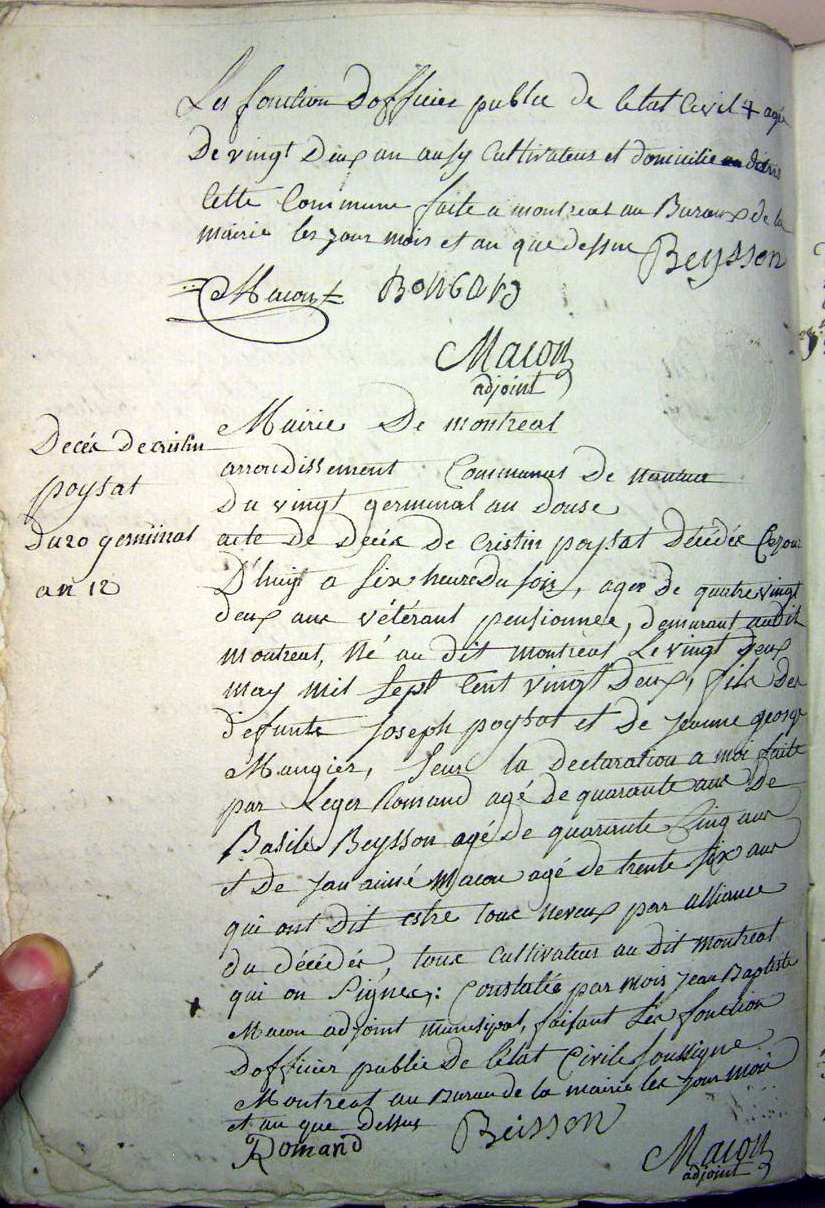 Les fonction Dofficier public de letat Civil + agé
De vingt Deux an ausy Cultivateur et domicilie
Cette Commune faite a montreal au Buraux de la
mairie les jour mois et an que dessu Beysson
Macon BONGARD
Macon
adjoint
Mairie De montreal
arrondissement Communal De nantua
Du vingt germinal an douse
Decéx De cristin
poysat
du 20 germinal
an 12
acte de Decéx de Cristin poysat décédée Cejour
D'huyt a six heure Du soir, agée de quatre vingt
deux ans vétérant pensionnée, demurant audit
montreal, Né au dit montreal Le vingt deux
may mil sept Cent vingt deux, fils des
defunts Joseph poysat et De jeanne george
Mangier, seur la Declaration a moi faite
par Leger Romand agé De quarante ans De
Basile Beysson agé De quarante Cinq ans
et De jan aimé Macon agé De trente six ans
qui ont Dit estre tous neveux par alliance
du décédéx, tous Cultivateur au Dit montreal
qui on signex: Constatée par mois Jean Baptiste
Macon adjoint municipal, faisant Lex fonction
Dofficier public De Létat Civile soussigne
Montreal au Burau de la mairie lex jour mois
et an que Dessus
Romand Beisson
Macon
adjoint